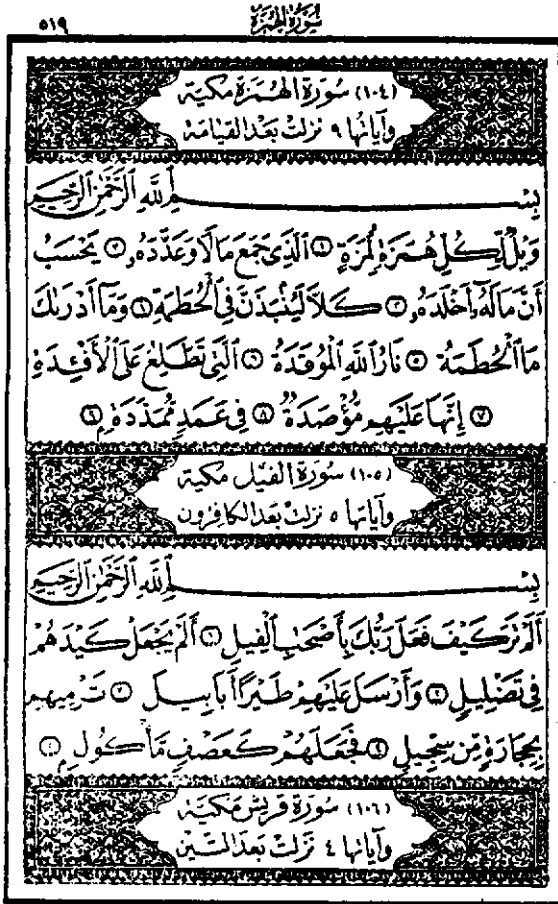 ٥١٩ سُورَةُ الْهُمَزَةِ
(١٠٤) سُورَةُ الهُمَزَةِ مَكِّيَّة
وَآيَاتُهَا ٩ نَزَلَتْ بَعْدَ القِيَامَة
بِسْمِ اللَّهِ الرَّحْمَٰنِ الرَّحِيمِ
وَيْلٌ لِّكُلِّ هُمَزَةٍ لُّمَزَةٍ ١ الَّذِي جَمَعَ مَالًا وَعَدَّدَهُ ٢ يَحْسَبُ
أَنَّ مَالَهُ أَخْلَدَهُ ٣ كَلَّا لَيُنۢبَذَنَّ فِي الْحُطَمَةِ ٤ وَمَا أَدْرَىٰكَ
مَا الْحُطَمَةُ ٥ نَارُ اللَّهِ الْمُوقَدَةُ ٦ الَّتِي تَطَّلِعُ عَلَى الْأَفْئِدَةِ
٧ إِنَّهَا عَلَيْهِم مُّؤْصَدَةٌ ٨ فِي عَمَدٍ مُّمَدَّدَةٍ ٩
(١٠٥) سُورَةُ الفِيلِ مَكِّيَّة
وَآيَاتُهَا ٥ نَزَلَتْ بَعْدَ الكَافِرُون
بِسْمِ اللَّهِ الرَّحْمَٰنِ الرَّحِيمِ
أَلَمْ تَرَ كَيْفَ فَعَلَ رَبُّكَ بِأَصْحَٰبِ الْفِيلِ ١ أَلَمْ يَجْعَلْ كَيْدَهُمْ
فِي تَضْلِيلٍ ٢ وَأَرْسَلَ عَلَيْهِمْ طَيْرًا أَبَابِيلَ ٣ تَرْمِيهِم
بِحِجَارَةٍ مِّن سِجِّيلٍ ٤ فَجَعَلَهُمْ كَعَصْفٍ مَّأْكُولٍ ٥
(١٠٦) سُورَةُ قُرَيْشٍ مَكِّيَّة
وَآيَاتُهَا ٤ نَزَلَتْ بَعْدَ التِّين